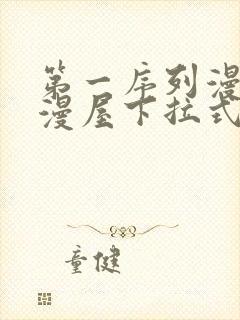 第一序列漫
漫屋下拉式
童健